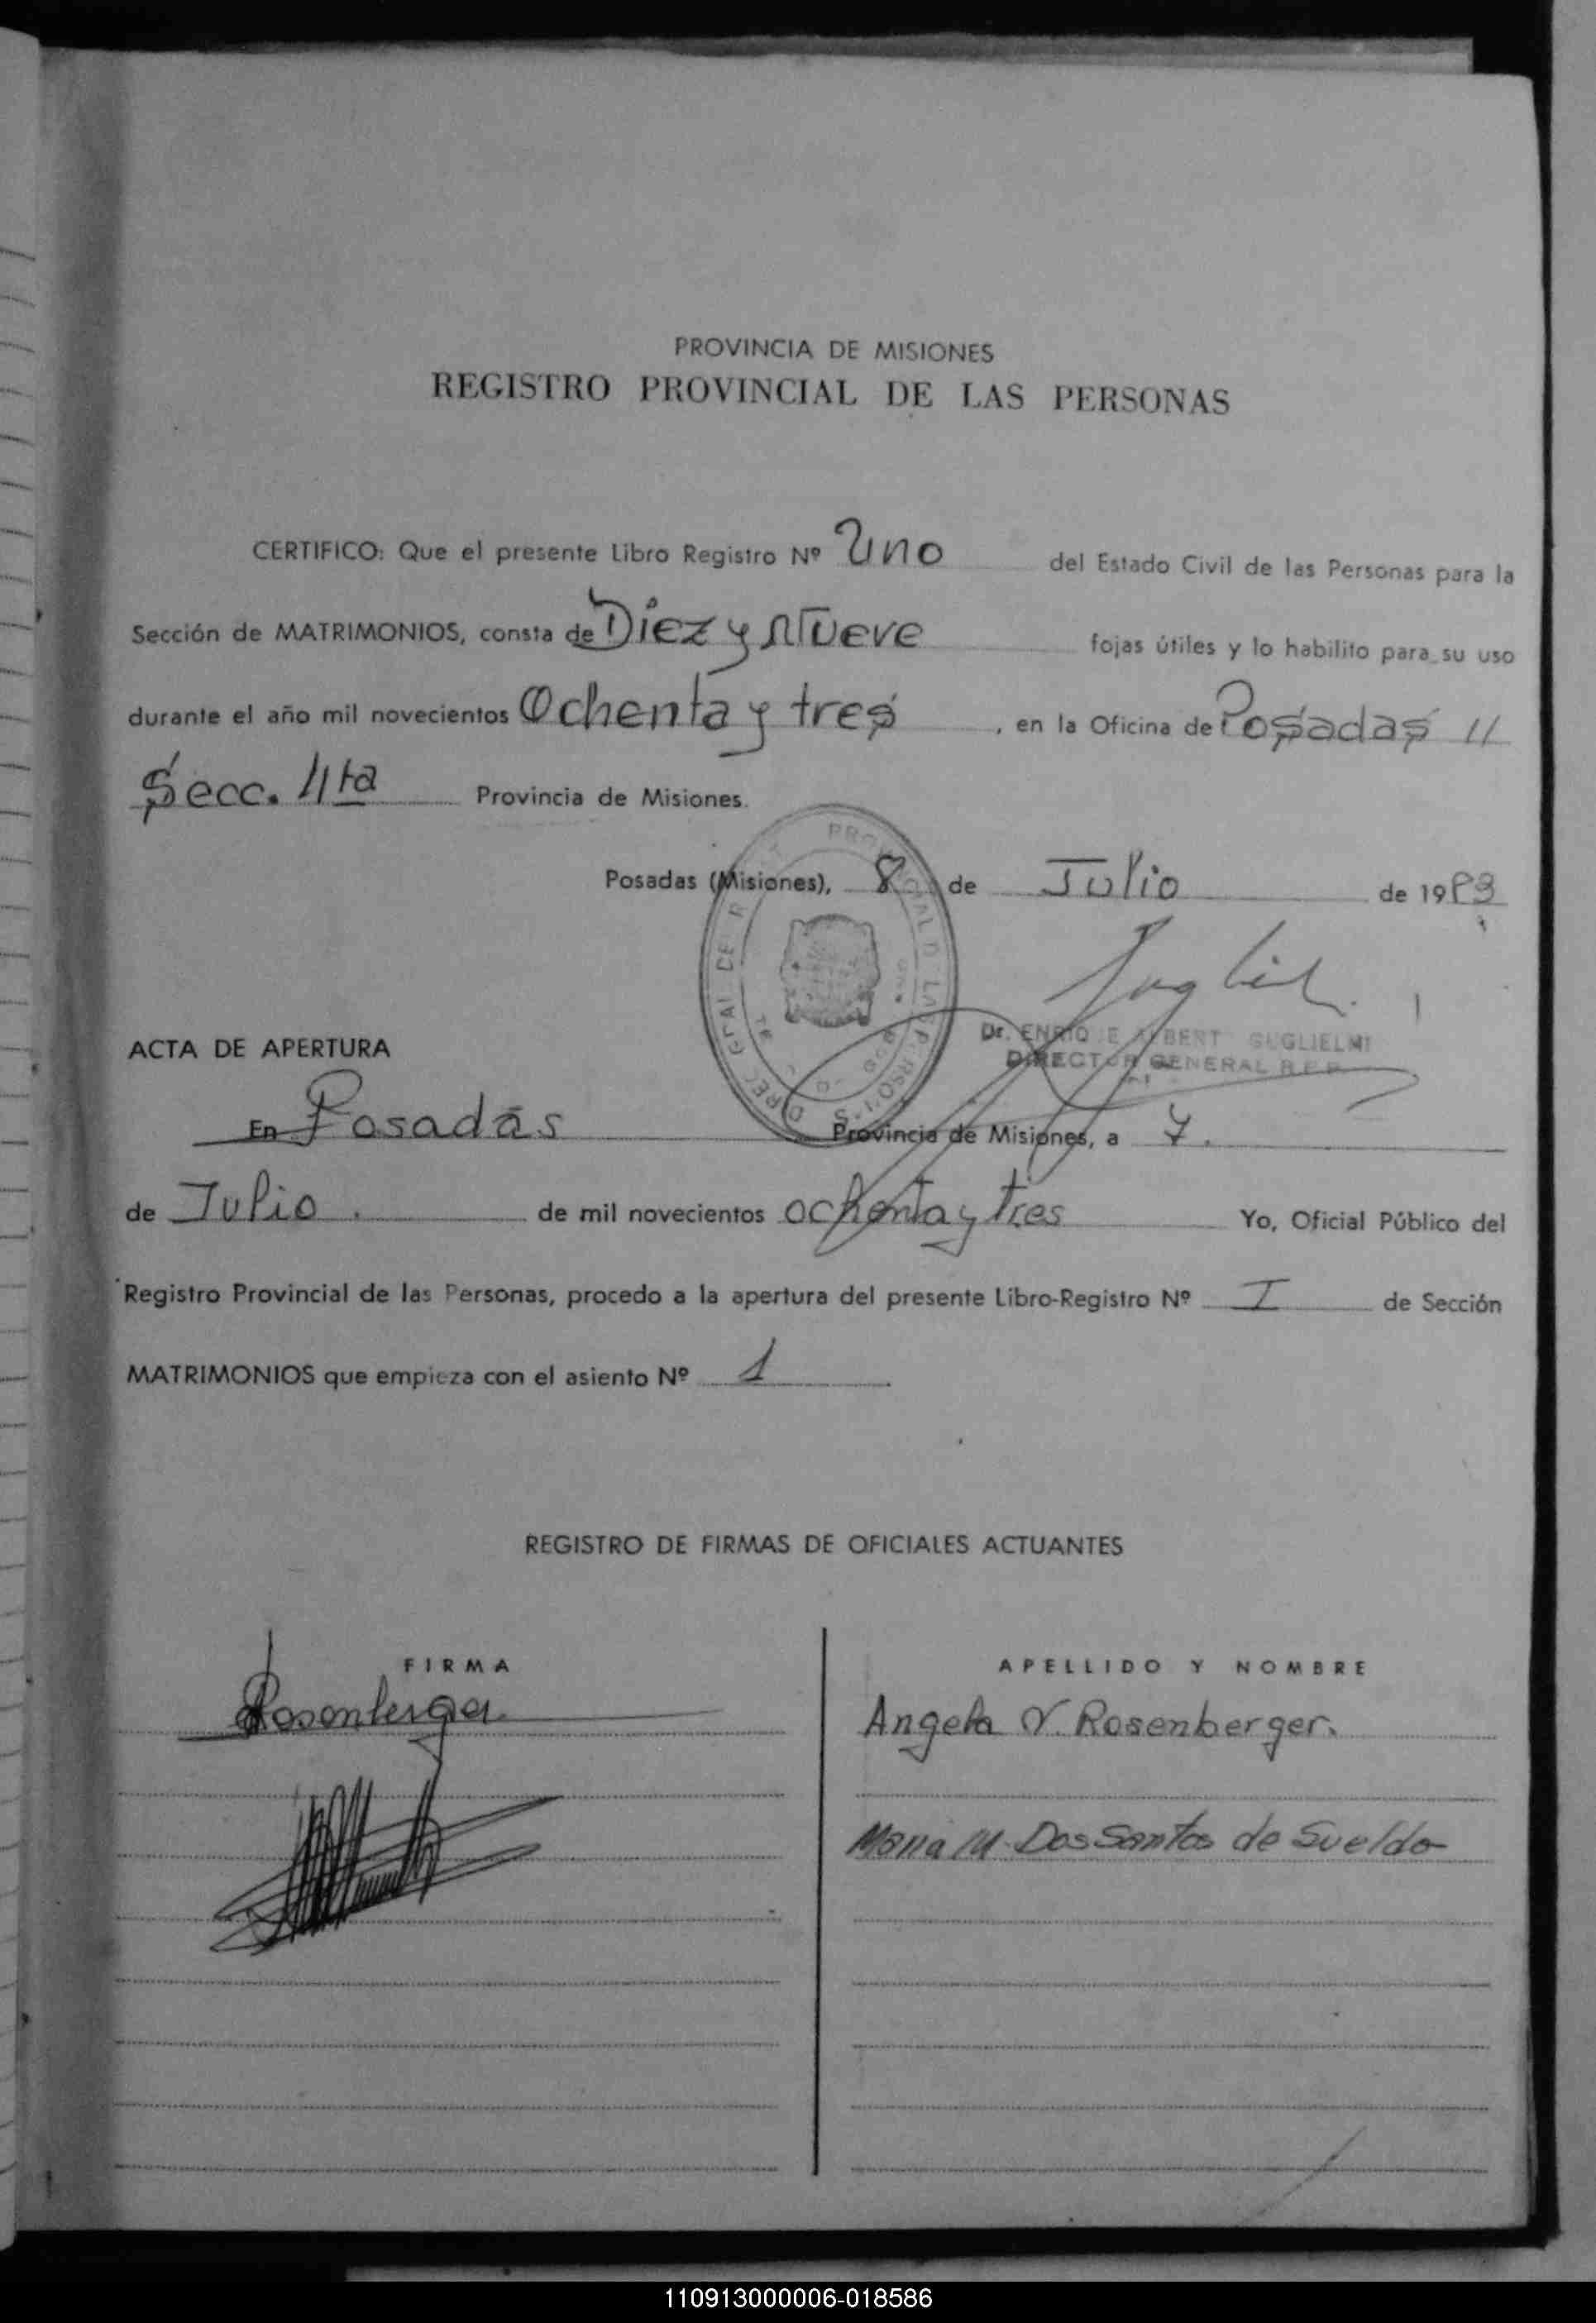 PROVINCIA DE MISIONES
REGISTRO PROVINCIAL DE LAS PERSONAS
CERTIFICO: Que el presente Libro Registro Nº Uno del Estado Civil de las Personas para la
Sección de MATRIMONIOS, consta de Diez y Nueve fojas útiles y lo habilito para su uso
durante el año mil novecientos Ochenta y tres, en la Oficina de Posadas //
Secc. 4ta Provincia de Misiones.
Posadas (Misiones), 8 de Julio de 1983
Dr. ENRIQUE ALBERT GUGLIELMI
DIRECTOR GENERAL R.P.P.
ACTA DE APERTURA
En Posadas Provincia de Misiones, a
de Julio. de mil novecientos ochenta y tres Yo, Oficial Público del
Registro Provincial de las Personas, procedo a la apertura del presente Libro-Registro Nº I de Sección
MATRIMONIOS que empieza con el asiento Nº 1
REGISTRO DE FIRMAS DE OFICIALES ACTUANTES
FIRMA APELLIDO Y NOMBRE
Rosenberger Angela N. Rosenberger.
Maria M. Dos Santos de Sueldo
110913000006-018586